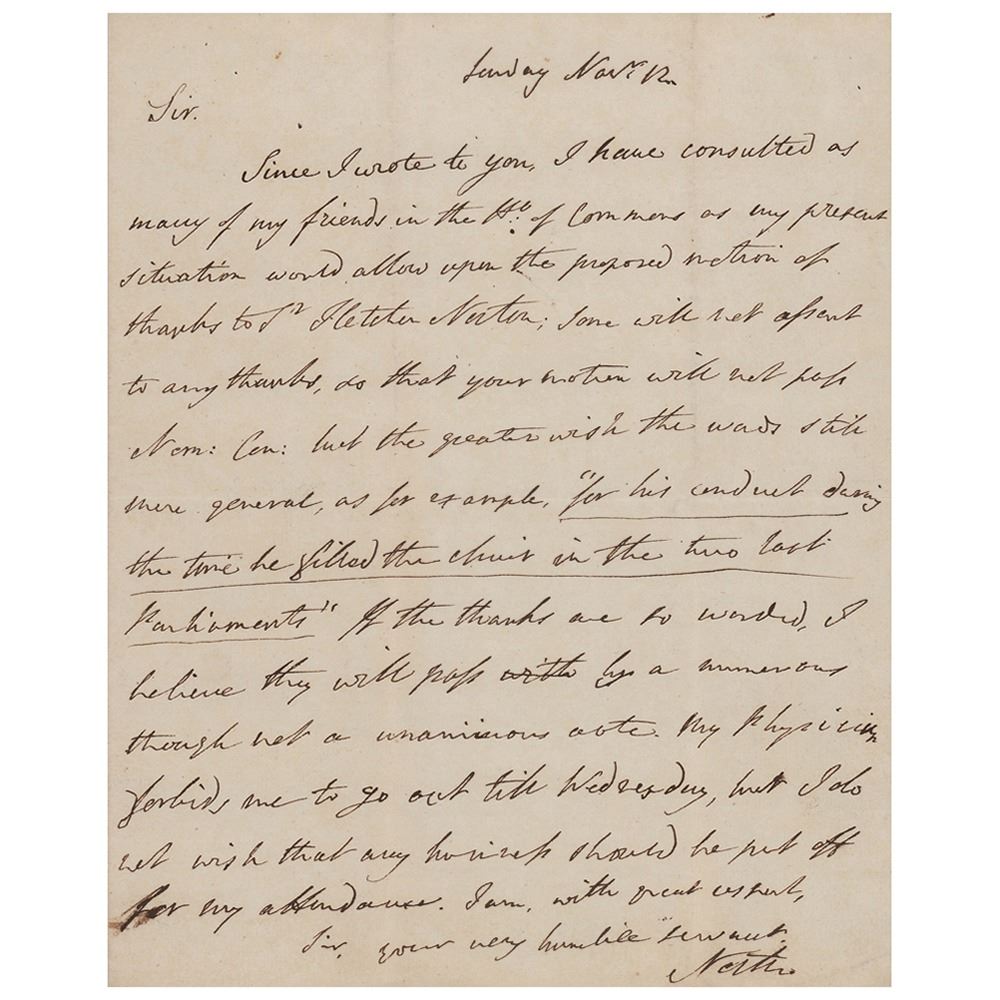 Sunday Novr. 12.
Sir.
Since I wrote to you, I have consulted as
many of my friends in the Ho: of Commons as my present
situation would allow upon the proposed motion of
thanks to Sr Fletcher Norton; some will not assent
to any thanks, so that your motion will not pass
Nem: Con: but the greater wish the words still
more general, as for example, "for his conduct during
the time he filled the chair in the two last
Parliaments" If the thanks are so worded, I
believe they will pass with by a numerous
though not a unanimous vote. My Physician
forbids me to go out till Wednesday, but I do
not wish that any business should be put off
for my attendance. I am, with great respect,
Sir, your very humble servant.
North.